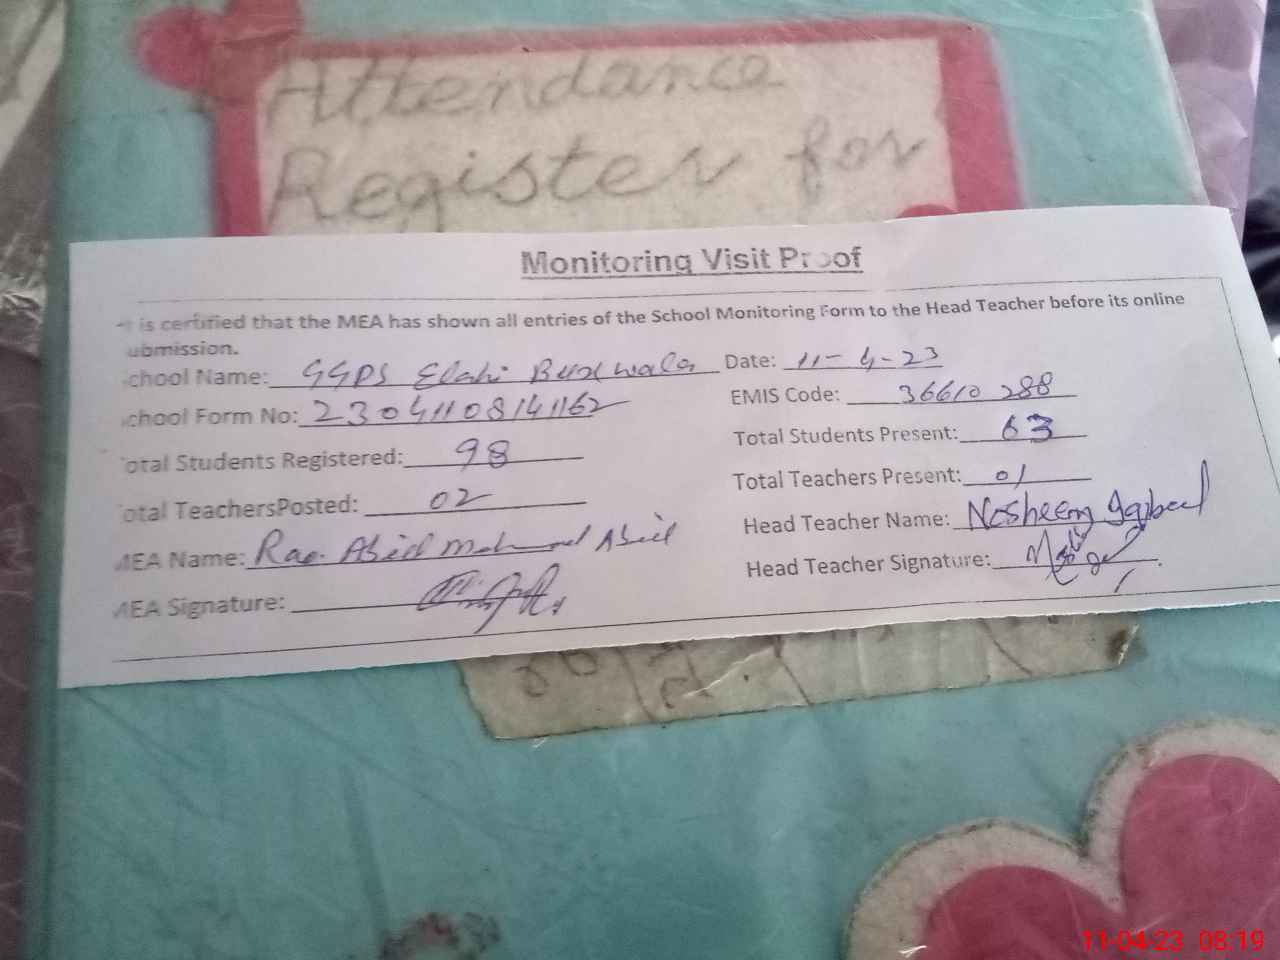 Attendance
Register for
Monitoring Visit Proof
It is certified that the MEA has shown all entries of the School Monitoring Form to the Head Teacher before its online
ubmission.
chool Name: GGPS Elahi Bux wala Date: 11-4-23
chool Form No: 23041108141162 EMIS Code: 36610288
otal Students Registered: 98 Total Students Present: 63
otal TeachersPosted: 02 Total Teachers Present: 01
MEA Name: Rao Abid Mahmood Abid Head Teacher Name: Nosheen Iqbal
MEA Signature: Head Teacher Signature:
11-04-23 08:19